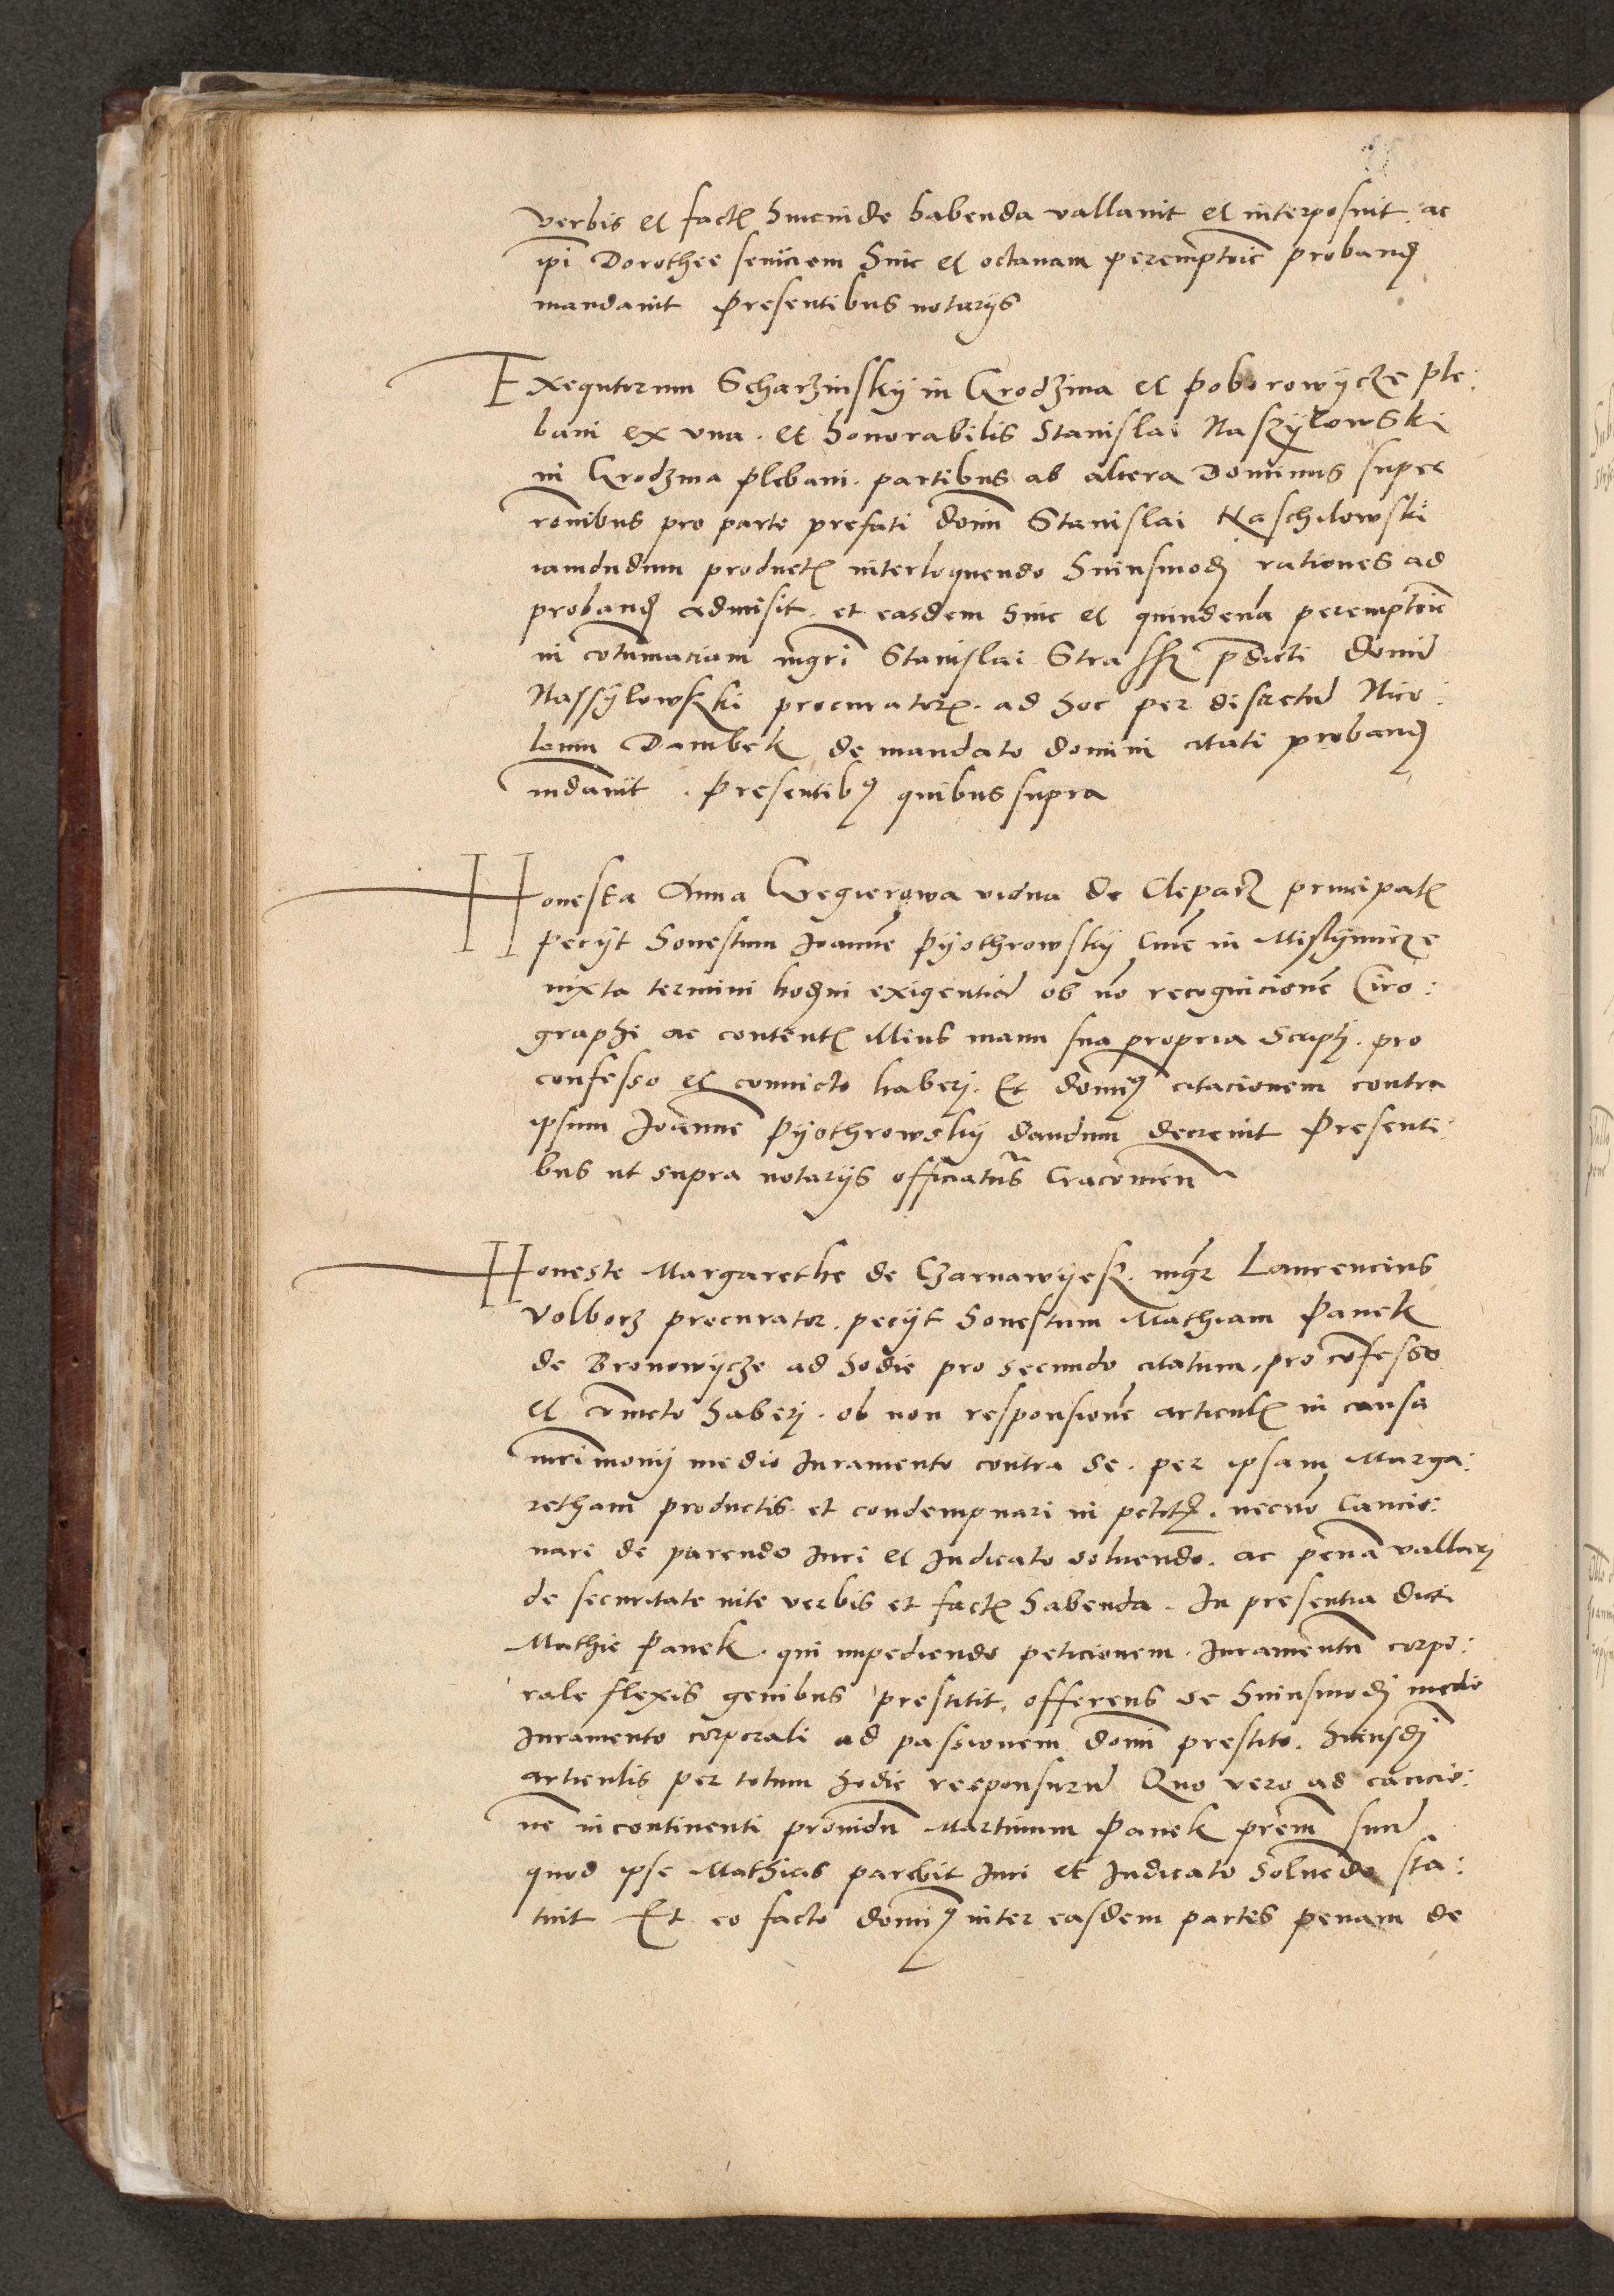 verbis et fact hincinde habenda vallavit et interposuit. ac
ipi Dorothee seviciem hinc et octavam peremptorie proband
mandavit Presentibus notarijs
Exequtorum Scharzinskÿ in Grodzina et poborowÿcze ple:
bani ex una. et honorabilis Stanislai Naszÿlowski
in Grodzina plebani. partibus ab altera Dominus super
ronibus pro parte prefati domi Stanislai Naschilowski
iamdudum product interloquendo huiusmodi rationes ad
proband admisit. et easdem hinc et quindena peremptorie
in cotumaciam mgri Stanislai Stra pdicti domi
Nassÿlowski procurator. ad hoc per discretum Nico:
laum Dambek de mandato domini citati proband
mdavit. Presentib quibus supra
Honesta Anna Gregierowa vidua de Cleparz principat
peciÿt honestum Joanne Pÿothrowskÿ Cive in
iuxta termini hodni exigentia ob no recognicione Ciro:
graphi ac content illius manu sua propria script. pro
confesso et convicto haberi. Et domi citacionem contra
ipsum Joanne Pÿothrowskÿ dandum decrevit Presenti
bus ut supra notarijs officiatus Cracovien
Honeste Margarethe de Czarnawÿesz. mgr Laurencius
Volborz procurator. peciÿt honestum Mathiam Panek
de Bronowÿcze ad hodie pro secundo citatum, pro cofesso
et covicto haberi. ob non responsione articul in causa
mrimonij medio Iuramento contra se. per ipsam Marga:
retham productis. et condempnari in petit. necno caucio:
nari de parendo Iuri et Iudicato solvendo. ac pena vallari
de securitate vite verbis et fact habenda. In presentia dicti
Mathie Panek. qui impediendo peticionem. Iuramentu corpo:
rale flexis genibus prestitit, offerens se huiusmodi medio
Iuramento corporali ad passionem domi prestito. huiusdi
articulis per totum hodie responsurum Quo vero ad caucio:
ne incontinenti providu Martinum Panek prem suu
quod ipse Mathias parebit Iuri et Iudicato solvedo sta:
tuit Et eo facto domi inter easdem partes penam de